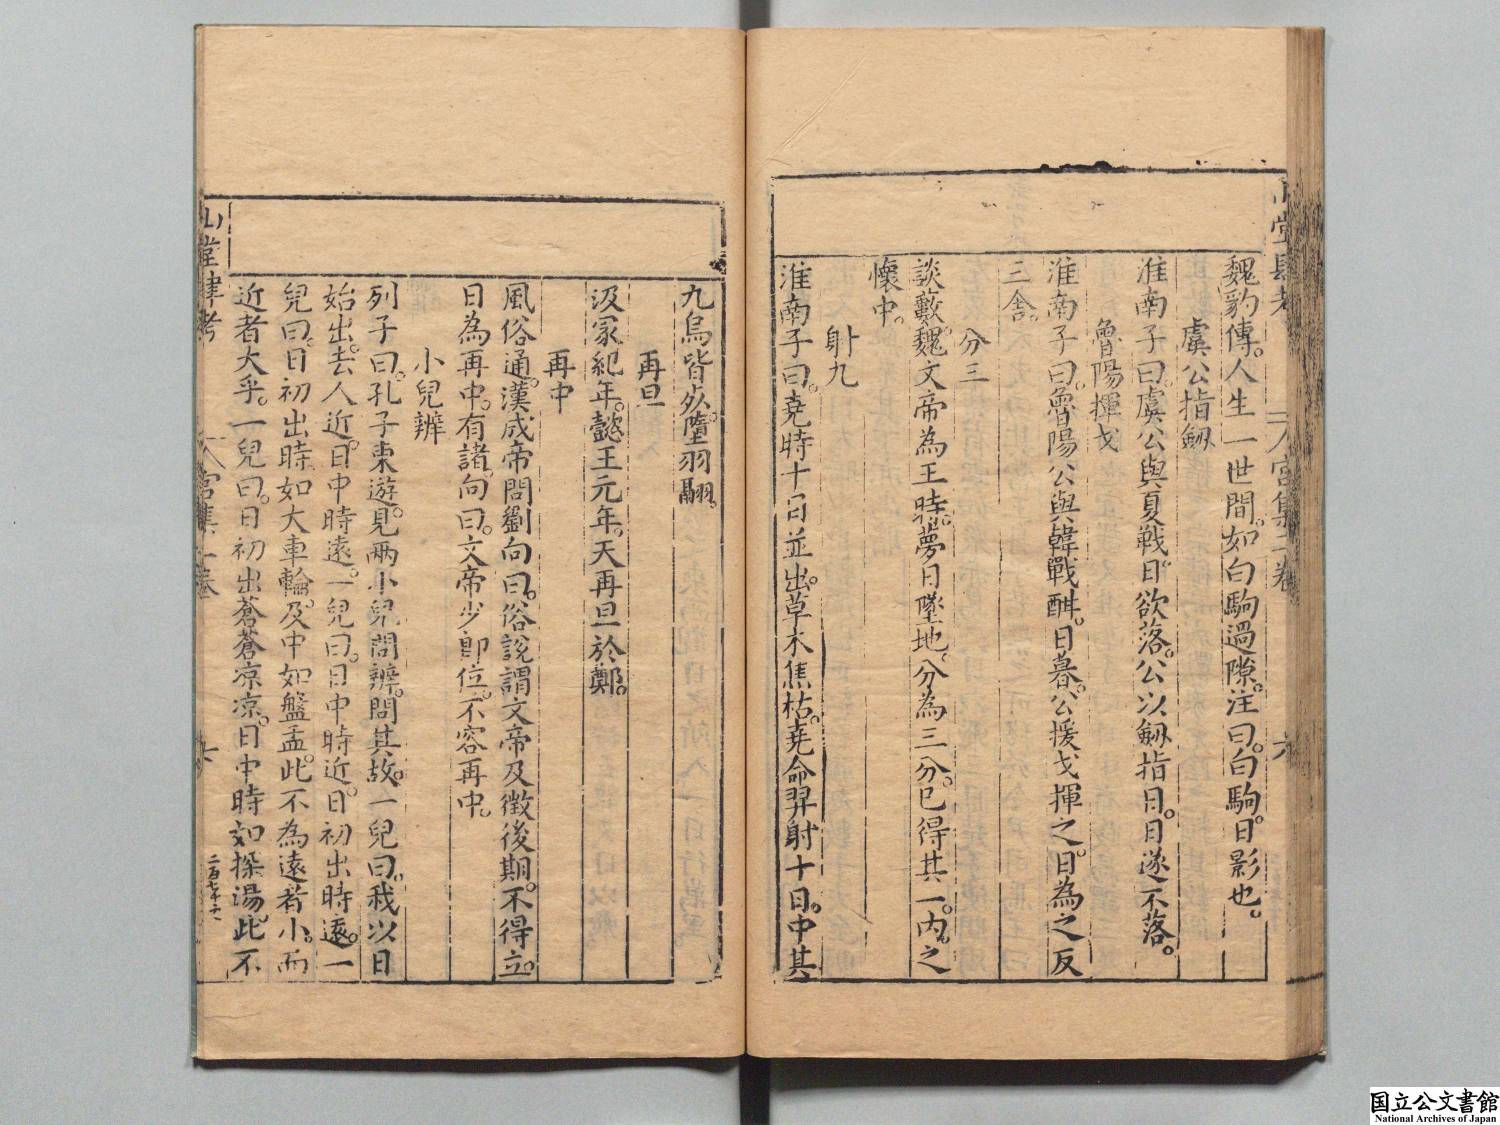 魏豹傳。人生一世間。如白駒過隙。注曰。白駒。日影也。
虞公指劔
淮南子曰。虞公與夏戰。日欲落。公以劔指日。日遂不落。
魯陽揮戈
淮南子曰。魯陽公與韓戰酣。日暮。公援戈揮之。日為之反
三舍。
分三
談藪。魏文帝為王時。夢日墜地。分為三分。已得其一。内之
懷中。
射九
淮南子曰。堯時十日並出。草木焦枯。堯命羿射十日。中其
九烏皆死。墮羽翮。
再旦
汲冢紀年。懿王元年。天再旦於鄭。
再中
風俗通。漢成帝問劉向曰。俗說謂文帝及徵後期。不得立。
日為再中。有諸。向曰。文帝少即位。不容再中。
小兒辨
列子曰。孔子東遊。見兩小兒問辨。問其故。一兒曰。我以日
始出。去人近。日中時遠。一兒曰。日中時近。日初出時遠。一
兒曰。日初出時如大車輪。及中如盤盂。此不為遠者小。而
近者大乎。一兒曰。日初出蒼蒼凉凉。日中時如探湯。此不
山堂肆考
宮集一卷
国立公文書館
National Archives of Japan